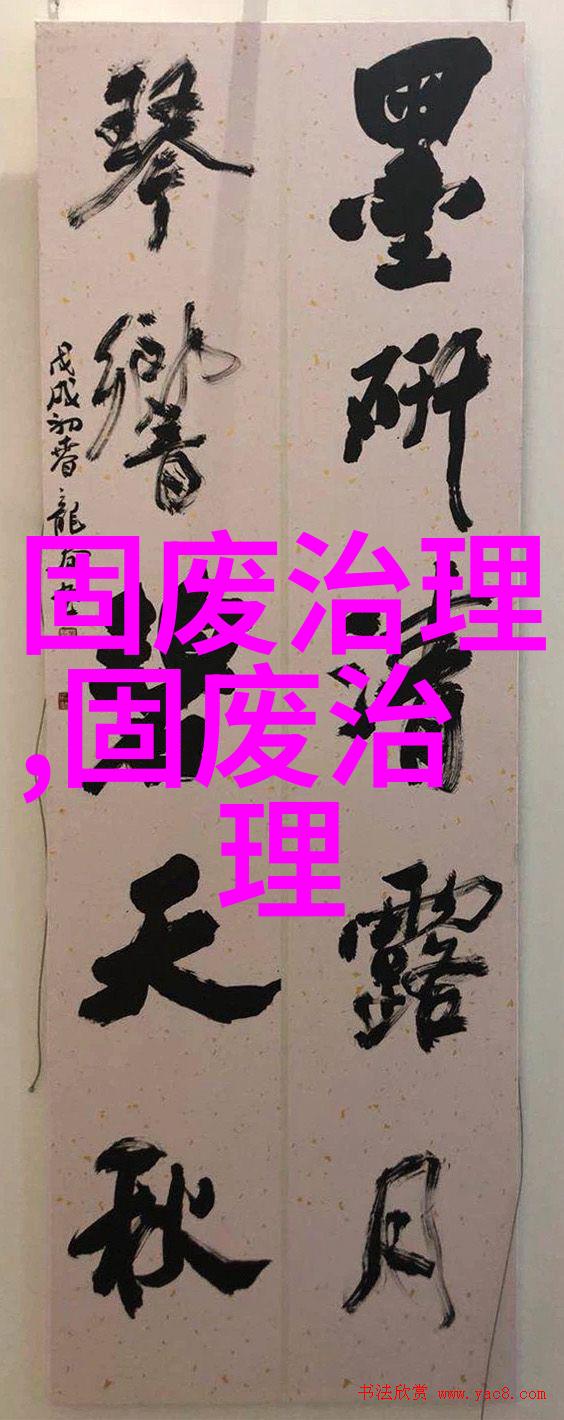 墨研清露月
琴響天秋
戊戌初春龍
固废治理
,固废治
理
书法欣赏 www.yac8.com